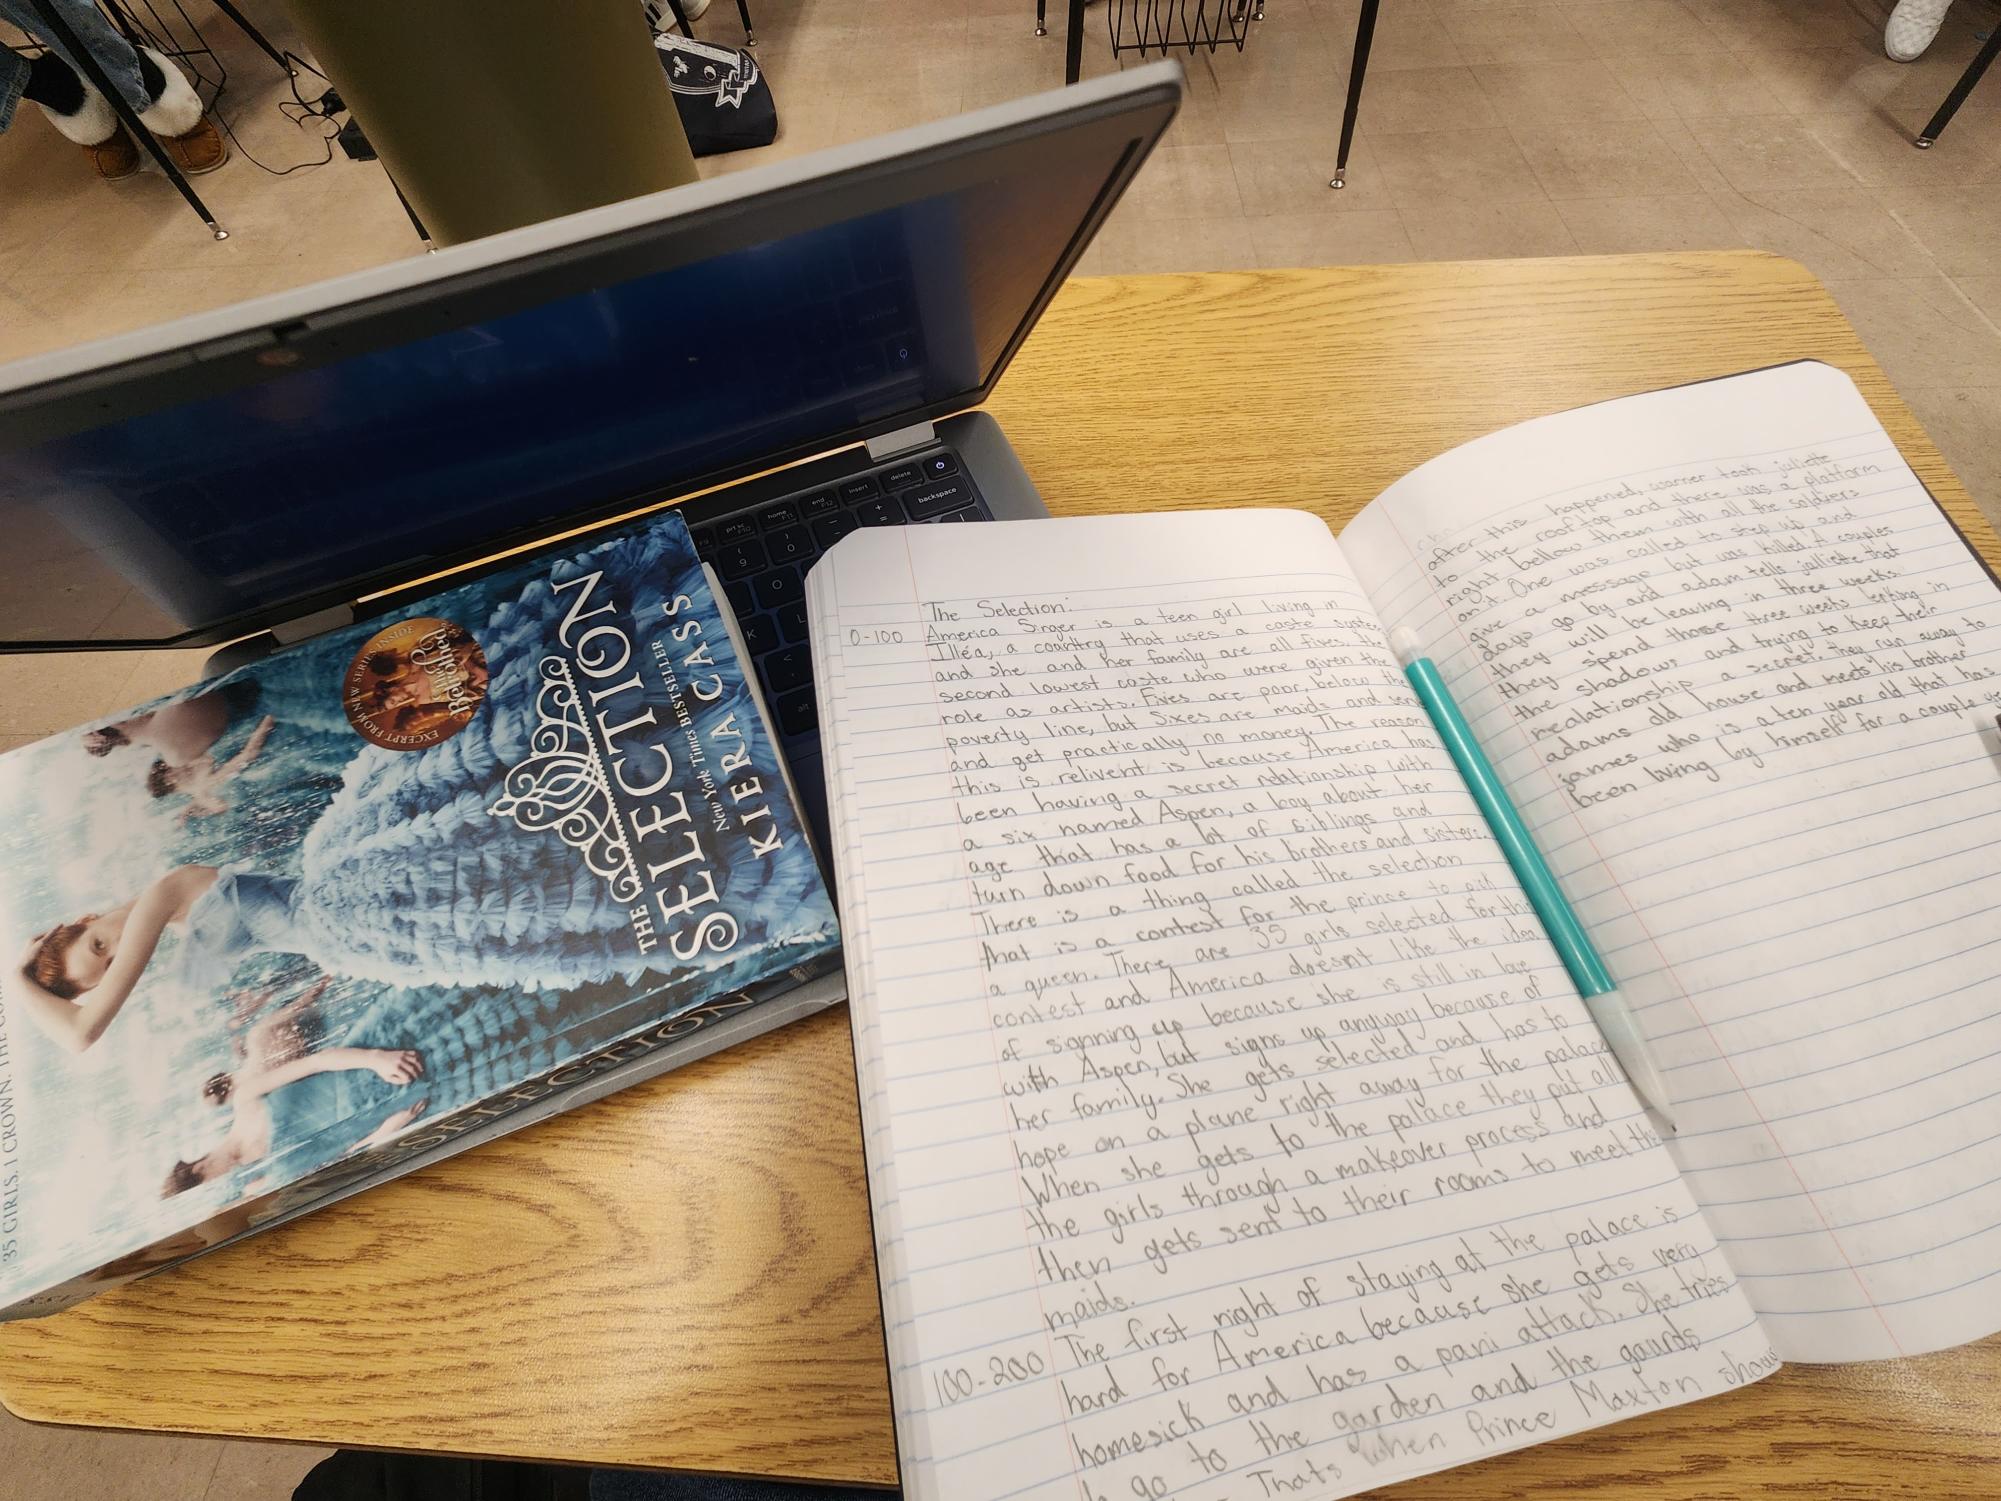 THE
SELECTION
NEW YORK TIMES BESTSELLER
KIERA CASS
EXCERPT FROM NEW SERIES INSIDE
35 GIRLS. 1 CROWN. THE
SELECTION
delete
insert
end
home
prt sc
backspace
alt
The Selection:
0-100 America Singer is a teen girl living in
Illéa, a country that uses a caste system
and she and her family are all fives, the
second lowest caste who were given the
role as artists. Fives are poor, below the
poverty line, but Sixes are maids and
and get practically no money. The reason
this is relivent is because America has
been having a secret relationship with
a six named Aspen, a boy about her
age that has a lot of siblings and
turn down food for his brothers and sisters.
There is a thing called the selection
that is a contest for the prince to pick
a queen. There are 35 girls selected for this
contest and America doesnt like the idea
of signning up because she is still in love
with Aspen, but signs up anyway because of
her family. She gets selected and has to
hope on a plane right away for the palace
When she gets to the palace they put all
the girls through a makeover process and
then gets sent to their rooms to meet the
maids.
100-200 The first night of staying at the palace is
hard for America because she gets very
homesick and has a pani attack. She tries
to go to the garden and the gaurds
Thats when Prince Maxton
after this happened, warner took juliette
to the rooftop and there was a platform
right bellow them with all the soldiers
on it. One was called to step up and
give a message but was killed. A couples
days go by and adam tells jalliette that
they will be leaving in three weeks
they spend those three weeks lerking in
the shadows and trying to keep their
realationship a secret. they run away to
adams old house and meets his brother
james who is a ten year old that has
been living by himself for a couple